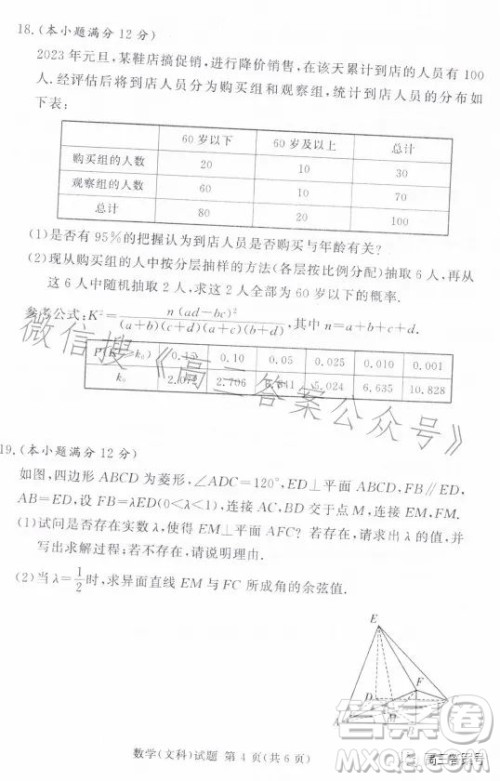 18.(本小题满分 12 分)
2023 年元旦,某鞋店搞促销,进行降价销售,在该天累计到店的人员有 100
人.经评估后将到店人员分为购买组和观察组,统计到店人员的分布如
下表:
60 岁以下 60 岁及以上 总计
购买组的人数 20 10 30
观察组的人数 60 10 70
总计 80 20 100
(1)是否有 95%的把握认为到店人员是否购买与年龄有关?
(2)现从购买组的人中按分层抽样的方法(各层按比例分配)抽取 6 人,再从
这 6 人中随机抽取 2 人,求这 2 人全部为 60 岁以下的概率.
参考公式:K²=n(ad-bc)²/(a+b)(c+d)(a+c)(b+d),其中 n=a+b+c+d.
0.10 0.05 0.025 0.010 0.001
k₀ 2.706 5.024 6.635 10.828
微信搜《高三答案公众号》
19.(本小题满分 12 分)
如图,四边形 ABCD 为菱形,∠ADC=120°,ED⊥平面 ABCD,FB∥ED,
AB=ED,设 FB=λED(0<λ<1),连接 AC,BD 交于点 M,连接 EM,FM.
(1)试问是否存在实数 λ,使得 EM⊥平面 AFC? 若存在,请求出 λ 的值,并
写出求解过程;若不存在,请说明理由.
(2)当 λ=1/2时,求异面直线 EM 与 FC 所成角的余弦值.
E
F
D
数学(文科)试题 第 4 页(共 6 页)